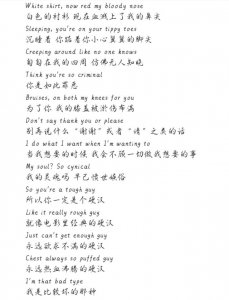 White shirt, now red my bloody nose
白色的衬衫 现在血溅上了我的鼻头
Sleeping, you're on your tippy toes
沉睡着 你踮着你小心翼翼的脚尖
Creeping around like no one knows
匍匐在我的四周 仿佛无人知晓
Think you're so criminal
你是如此罪恶
Bruises, on both my knees for you
为了你 我的膝盖被淤伤布满
Don't say thank you or please
别再说什么“谢谢”或者“请”之类的话
I do what I want when I'm wanting to
当我想要的时候 我会不顾一切做我想要的事
My soul? So cynical
我的灵魂吗 早已愤世嫉俗
So you're a tough guy
所以你一定是个硬汉
Like it really rough guy
就像电影里经典的硬汉
Just can't get enough guy
永远欲求不满的硬汉
Chest always so puffed guy
永远热血沸腾的硬汉
I'm that bad type
我是比较坏的那种